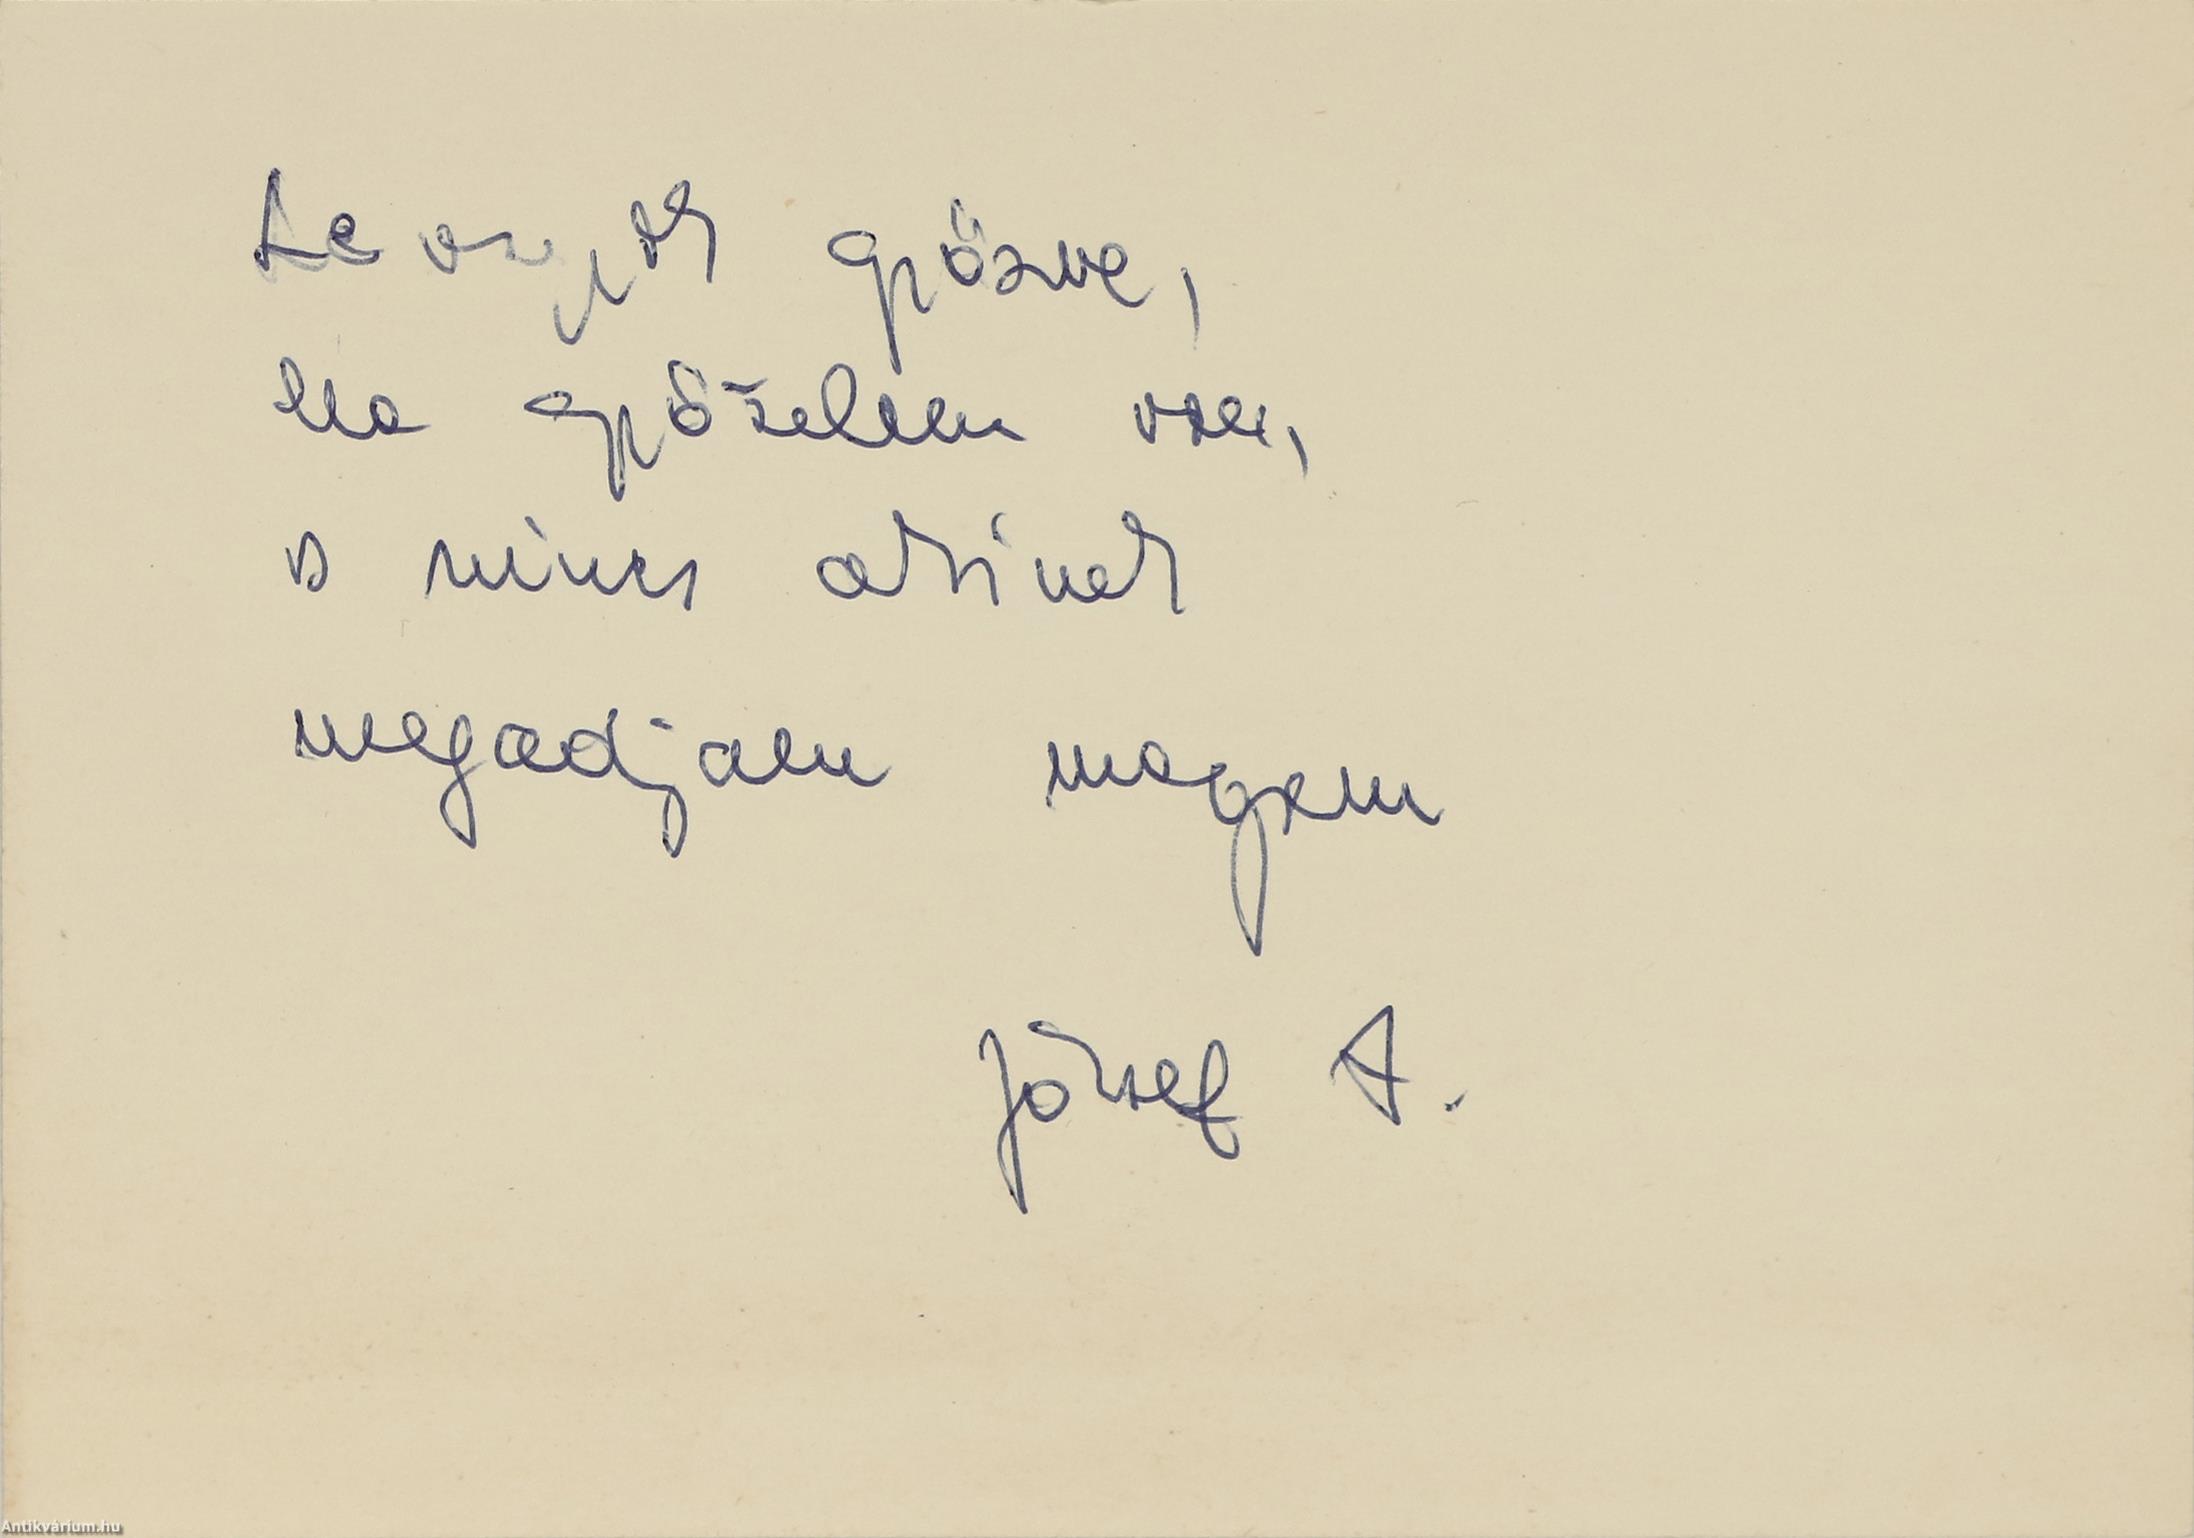 Le vagyok győzve,
ha győzelem van,
s nincs akinek
megadjam magam
József A.
Antikvárium.hu